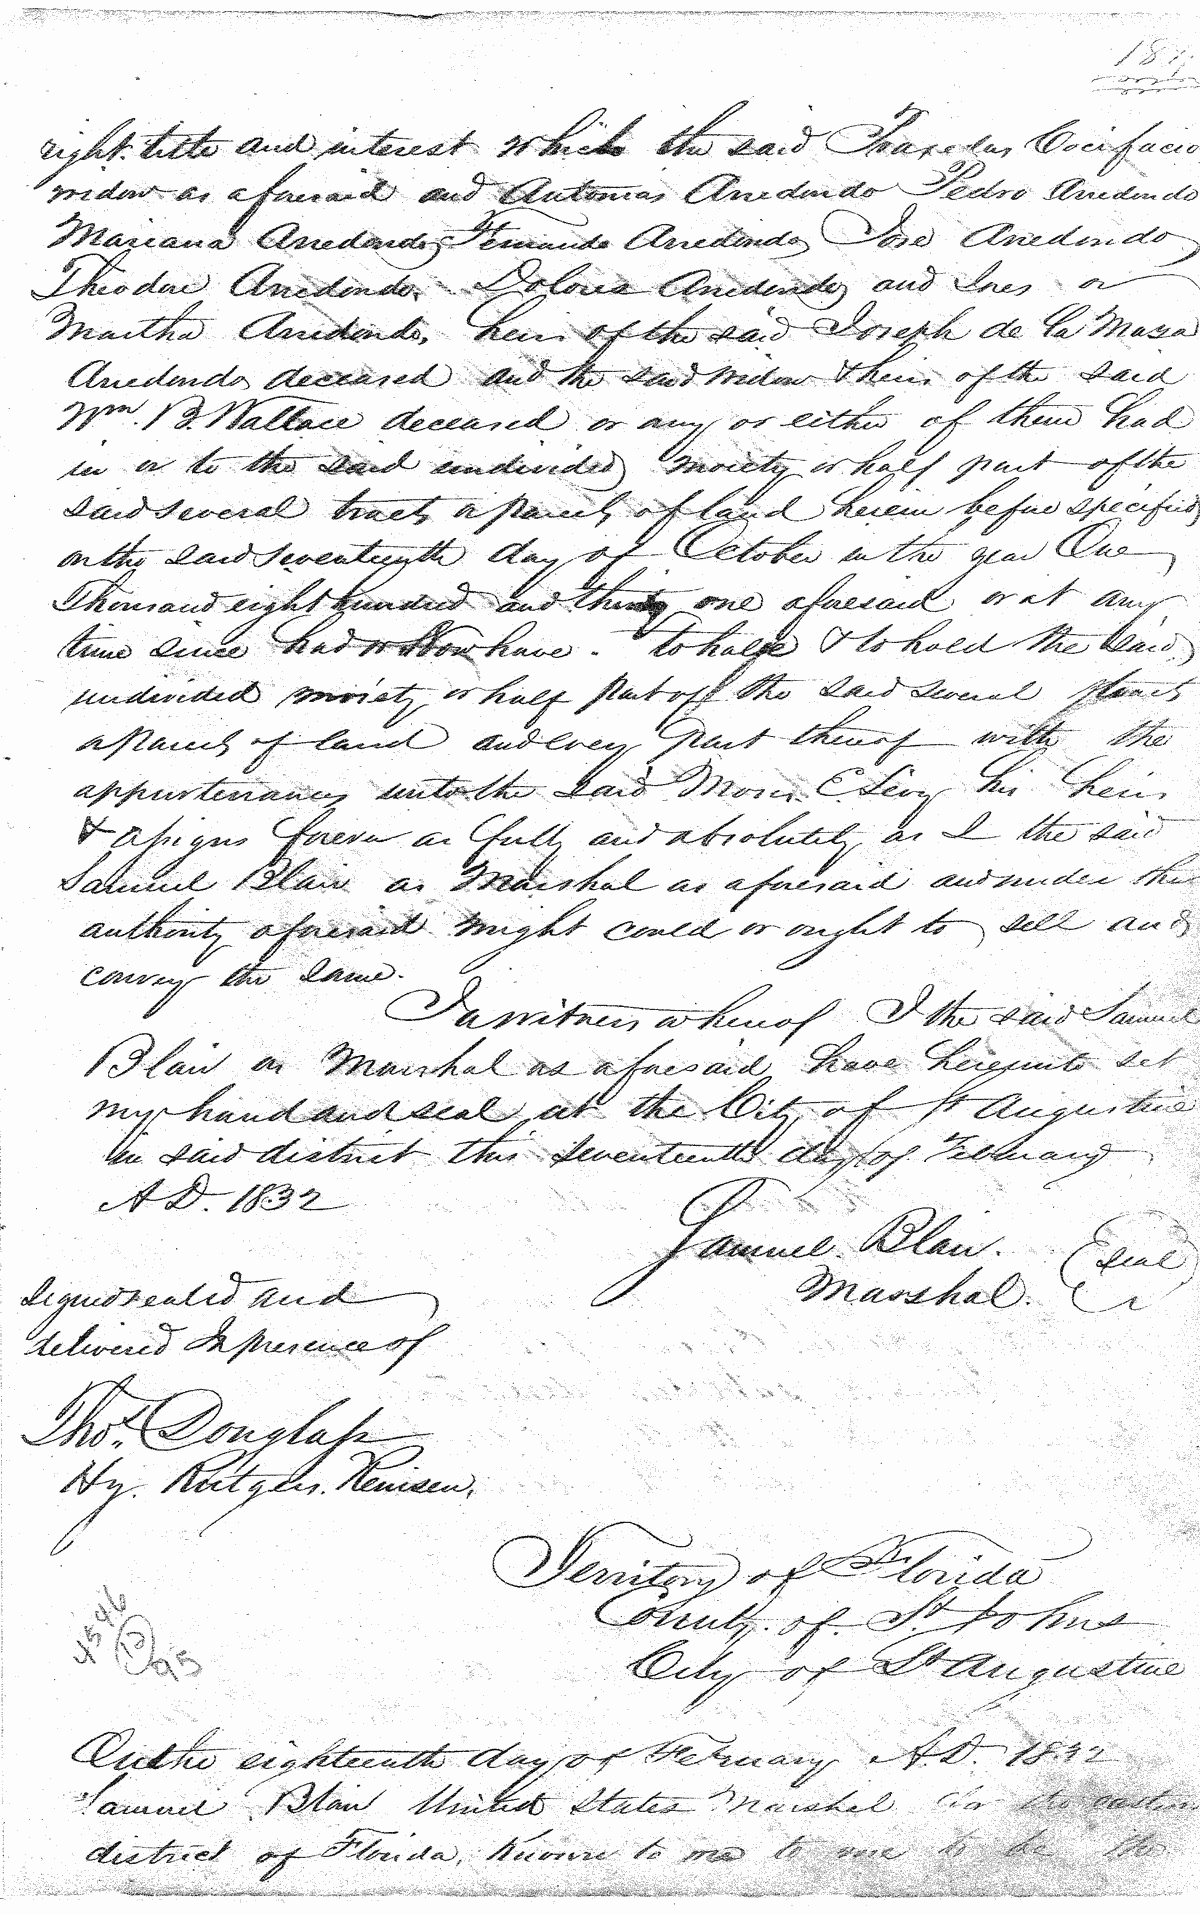 right title and interest which the said
widow as aforesaid and Antonia Arredondo Pedro Arredondo
Mariana Arredondo, Fernando Arredondo, Jose Arredondo
Theodore Arredondo, Dolores Arredondo and Ines or
Martha Arredondo, heirs of the said Joseph de la Maza
Arredondo deceased and the said widow & heirs of the said
Wm. B. Wallace deceased or any or either of them had
in or to the said undivided moiety or half part of the
said several tracts or parcels of land herein before specified
on the said seventeenth day of October in the year One
Thousand eight hundred and thirty one aforesaid or at any
time since had or now have. To have & to hold the said
undivided moiety or half part of the said several tracts
or parcels of land and every part thereof with the
appurtenances unto the said Moses E. Levy his heirs
& assigns forever as fully and absolutely as I the said
Samuel Blair as Marshal as aforesaid and under the
authority aforesaid might could or ought to sell and
convey the same.
In witness whereof I the said Samuel
Blair as Marshal as aforesaid have hereunto set
my hand and seal at the City of St Augustine
in said district this seventeenth day of February
A D. 1832
Samuel Blair. Seal
Marshal.
Signed sealed and
delivered In presence of
Thos. Douglass
Hy. Rutgers.
Territory of Florida
County of St Johns
City of St Augustine
4546
95
On the eighteenth day of February A.D. 1832
Samuel Blair United States Marshal for the eastern
district of Florida, known to me to be the